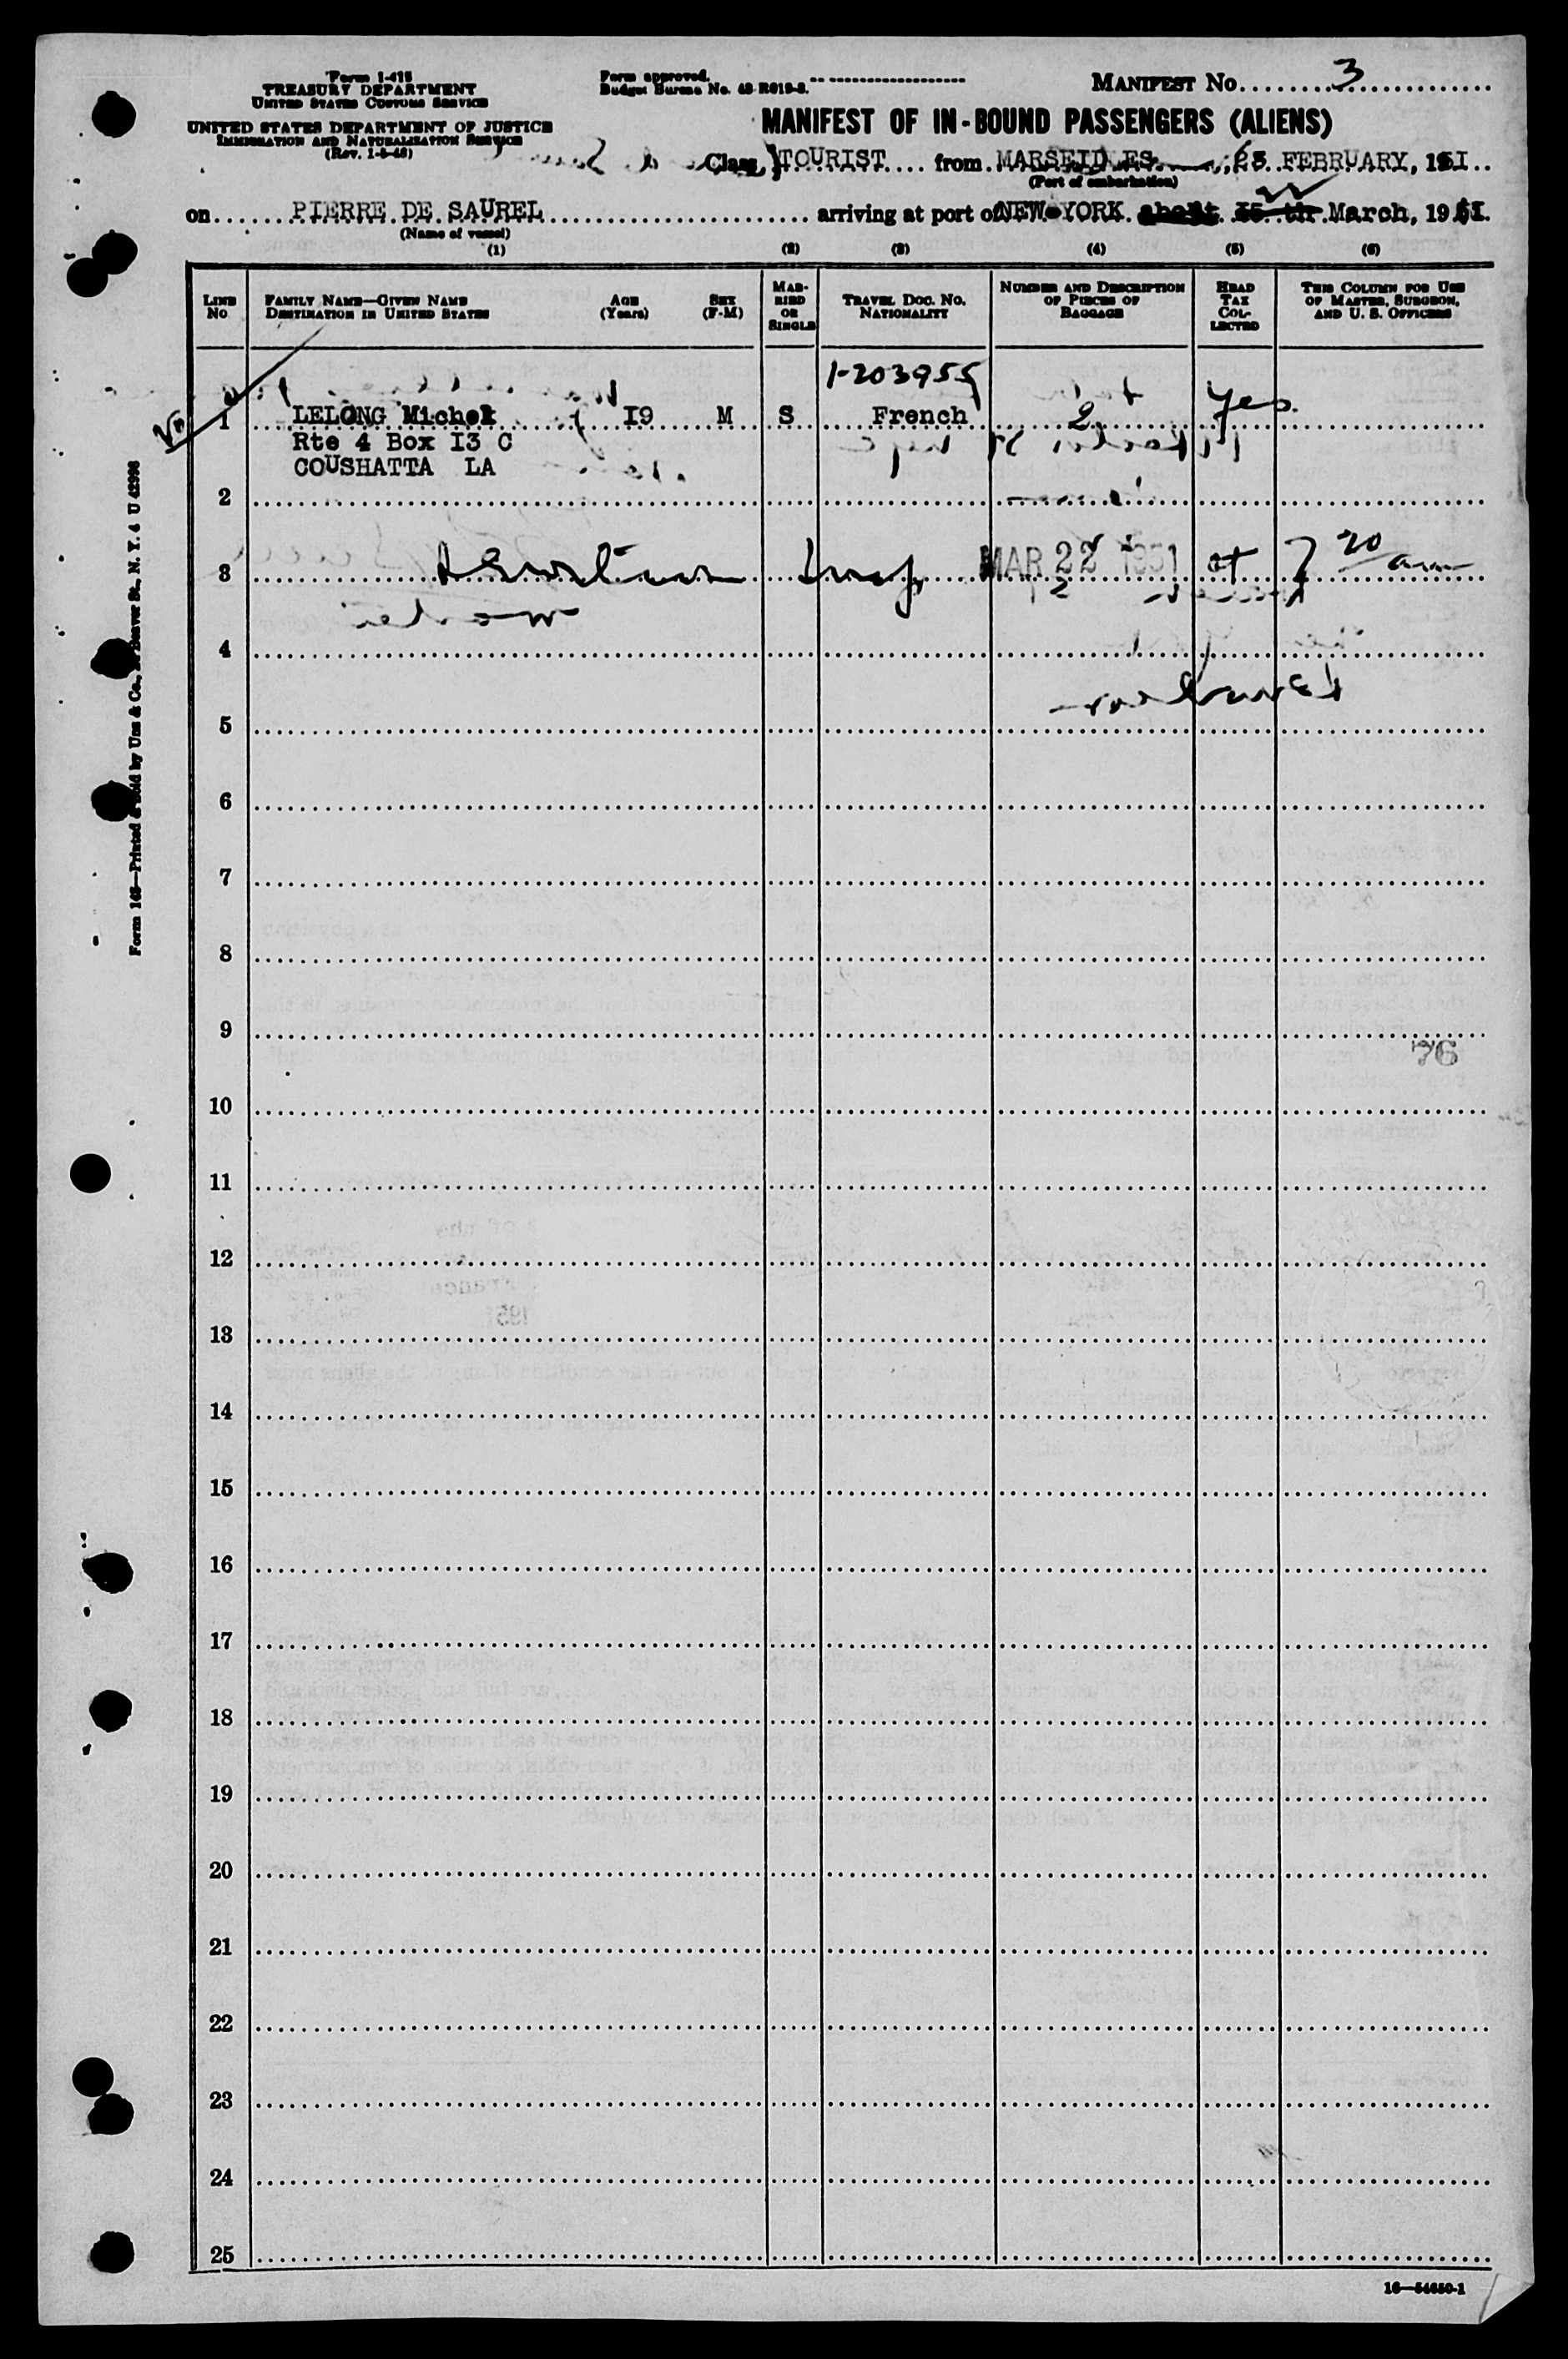 Form I-415
TREASURY DEPARTMENT
UNITED STATES CUSTOMS SERVICE
UNITED STATES DEPARTMENT OF JUSTICE
IMMIGRATION AND NATURALIZATION SERVICE
(Rev. 1-5-48)
Form approved.
Budget Bureau No. 43-R019-3.
MANIFEST No. 3
MANIFEST OF IN-BOUND PASSENGERS (ALIENS)
Class TOURIST from MARSEILLES, 23 FEBRUARY, 1951
(Port of embarkation)
on PIERRE DE SAUREL arriving at port of NEW YORK about 15 th 22 March, 1951.
(Name of vessel)
(1) (2) (3) (4) (5) (6)
LINE No
FAMILY NAME—GIVEN NAME
DESTINATION IN UNITED STATES
AGE (Years)
SEX (F-M)
MARRIED OR SINGLE
TRAVEL DOC. NO. NATIONALITY
NUMBER AND DESCRIPTION OF PIECES OF BAGGAGE
HEAD TAX COLLECTED
THIS COLUMN FOR USE OF MASTER, SURGEON, AND U. S. OFFICERS
1-203955
1 LELONG Michel 19 M S French 2 Yes
Rte 4 Box I3 C
COUSHATTA LA
2
3 MAR 22 1951 at 7 20 am
4
5
6
7
8
9
76
10
11
12
13
14
15
16
17
18
19
20
21
22
23
24
25
16—54650-1